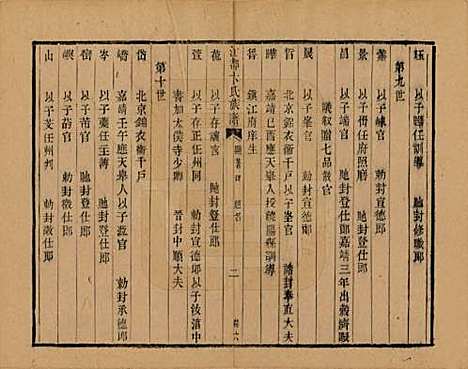 鈺 以子瞻任訓導 馳封修職郎
第九世
以子崠官 勅封宣德郎
景 以子僃任府照磨 馳封登仕郎
昌 以子諧官 馳封登仕郎嘉靖三年出穀濟賑
議叙贈七品散官
晟 以子峯官 勅封宣德郎
晢 北京錦衣衛千戶以子峯官 誥封奉直大夫
曄 嘉靖己酉應天舉人授德陽縣訓導
晉 鎮江府庠生
江都卞氏族譜 二
以存讓官 馳封登仕郎
萱 以子存正任州同 勅封宣德郎以子汝濱中
書加太僕寺少卿 晉封中順大夫
第十世
岱 北京錦衣衛千戶
嶠 嘉靖壬午應天舉人以子瀔官 勅封承德郎
岑 以子茱任主簿 馳封登仕郎
峀 以子苗官 勅封登仕郎
嶼 以子莳官 勅封徵仕郎
山 以子芠任州判 勅封徵仕郎